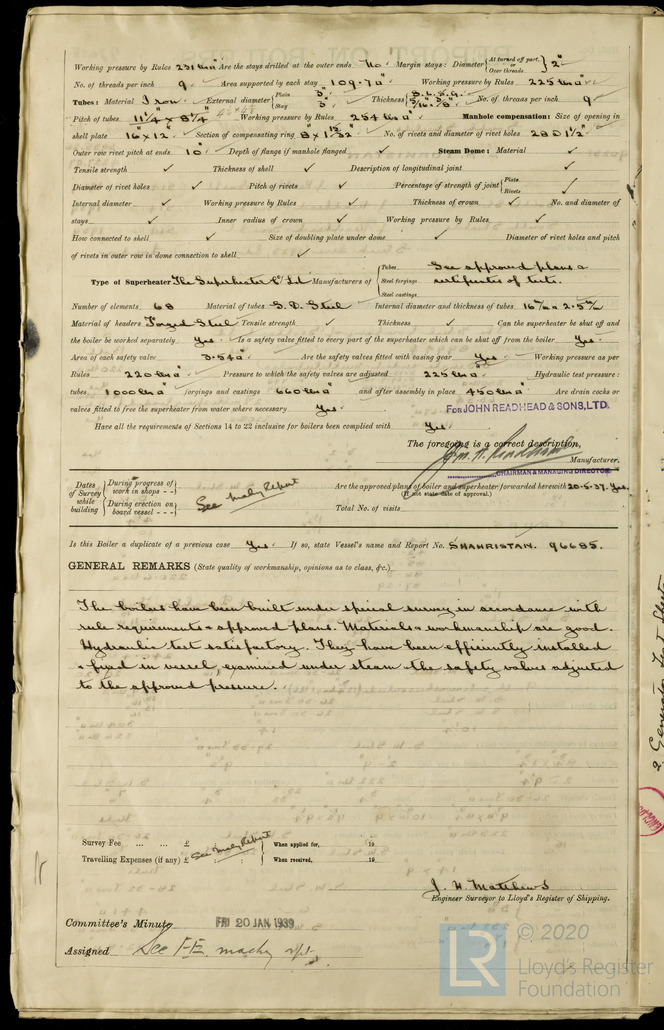 Working pressure by Rules 231 lbs □" Are the stays drilled at the outer ends No. Margin stays: Diameter { At turned off part. or Over threads } 2"
No. of threads per inch 9. Area supported by each stay 109.7 □" Working pressure by Rules 225 lbs □"
Tubes: Material Iron External diameter { Plain 3". Stay 3" Thickness { 8. L.S.G. 5/16 & 3/8" No. of threads per inch 9
Pitch of tubes 11 1/4 x 8 1/4" Working pressure by Rules 254 lbs □" Manhole compensation: Size of opening in
shell plate 16" x 12" Section of compensating ring 8" x 1 13/32" No. of rivets and diameter of rivet holes 28 @ 1 1/2"
Outer row rivet pitch at ends 10" Depth of flange if manhole flanged ✓ Steam Dome: Material ✓
Tensile strength ✓ Thickness of shell ✓ Description of longitudinal joint ✓
Diameter of rivet holes ✓ Pitch of rivets ✓ Percentage of strength of joint { Plate Rivets ✓
Internal diameter ✓ Working pressure by Rules ✓ Thickness of crown ✓ No. and diameter of
stays ✓ Inner radius of crown ✓ Working pressure by Rules ✓
How connected to shell ✓ Size of doubling plate under dome ✓ Diameter of rivet holes and pitch
of rivets in outer row in dome connection to shell ✓
Type of Superheater The Superheater Co Ltd Manufacturers of { Tubes Steel forgings Steel castings See approved plans & certificates of tests.
Number of elements 68 Material of tubes S.D. Steel Internal diameter and thickness of tubes 16 m/m & 2.5 m/m
Material of headers Forged Steel Tensile strength ✓ Thickness ✓ Can the superheater be shut off and
the boiler be worked separately Yes. Is a safety valve fitted to every part of the superheater which can be shut off from the boiler Yes.
Area of each safety valve 3.54 □" Are the safety valves fitted with easing gear Yes Working pressure as per
Rules 220 lbs □" Pressure to which the safety valves are adjusted 225 lbs □" Hydraulic test pressure:
tubes 1000 lbs □" forgings and castings 660 lbs □" and after assembly in place 450 lbs □" Are drain cocks or
valves fitted to free the superheater from water where necessary Yes.
FOR JOHN READHEAD & SONS, LTD.
Have all the requirements of Sections 14 to 22 inclusive for boilers been complied with Yes.
The foregoing is a correct description,
Manufacturer.
CHAIRMAN & MANAGING DIRECTOR
Dates of Survey while building { During progress of work in shops - - } { During erection on board vessel - - - } See Mchy Report
Are the approved plans of boiler and superheater forwarded herewith 20-5-37. Yes.
(If not state date of approval.)
Total No. of visits
Is this Boiler a duplicate of a previous case Yes. If so, state Vessel's name and Report No. SHAHRISTAN. 96685.
GENERAL REMARKS (State quality of workmanship, opinions as to class, &c.)
The boilers have been built under special survey in accordance with
rule requirements & approved plans. Materials & workmanship are good.
Hydraulic test satisfactory. They have been efficiently installed
& fixed in vessel, examined under steam & the safety valves adjusted
to the approved pressure.
Survey Fee ... ... £ See Mchy Report When applied for, 19
Travelling Expenses (if any) £ When received, 19
J. H. Matthews
Engineer Surveyor to Lloyd's Register of Shipping.
Committee's Minute FRI 20 JAN 1939
Assigned See F.E. machy rpt.
LR © 2020
Lloyd's Register
Foundation